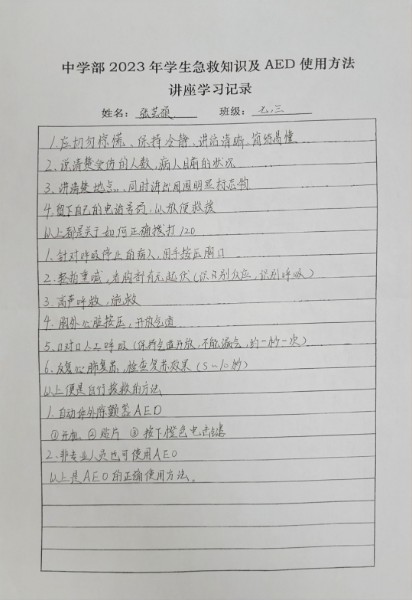 中学部 2023 年学生急救知识及 AED 使用方法
讲座学习记录
姓名： 张芸 班级： 七.三
1.切勿惊慌、保持冷静、讲话清晰、简短易懂
2.说清楚受伤的人数，病人目前的状况
3.讲清楚地点，同时讲出周围明显标志物
4.留下自己的电话号码，以方便救援
以上都是关于如何正确拨打120
1.针对呼吸停止的病人，用手按压胸口
2.轻拍重喊，看胸部有无起伏（识别反应，识别呼吸）
3.高声呼救，施救
4.胸外心脏按压，开放气道
5.口对口人工呼吸（保持气道开放，不能漏气，约一秒一次）
6.反复心肺复苏，检查复苏效果（5～10秒）
以上便是自行拨救的方法
1.自动体外除颤器AED
①开机 ②贴片 ③按下橙色电击键
2.非专业人员也可使用AED
以上是AED的正确使用方法。